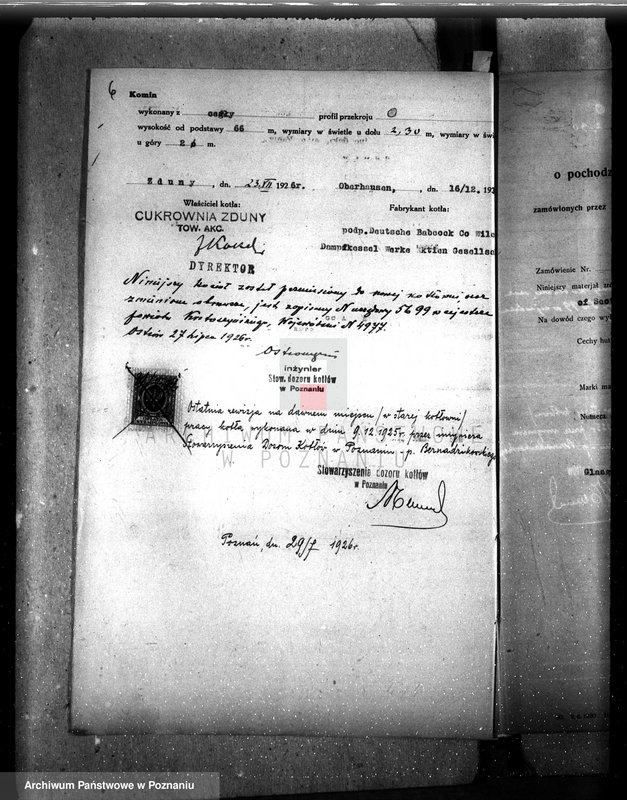 6
Komin
wykonany z cegły profil przekroju O
wysokość od podstawy 66 m, wymiary w świetle u dołu 2,30 m, wymiary w świe
u góry 2 m.
Zduny, dn. 23.VII 1926r. Oberhausen, dn. 16/12. 192
Właściciel kotła: Fabrykant kotła:
CUKROWNIA ZDUNY
TOW. AKC.
podp. Deutsche Babcock Co Wilc
Dampfkessel Werke Aktien Gesellsc
DYREKTOR
Niniejszy kocioł został przeniesiony do nowej kotłowni, oraz
zmieniono obmurze, jest zapisany N urzędowy 5699 w rejestrze
powiatu Krotoszyńskiego, Województwa N 4977.
Ostrów 27 lipca 1926r.
inżynier
Stow. dozoru kotłów
w Poznaniu
Ostatnia rewizja na dawnem miejscu /w starej kotłowni/
pracy kotła wykonana w dniu 9.12.1925r. przez inżyniera
Stowarzyszenia Dozoru Kotłów w Poznaniu p. Bernadzikowskiego
Stowarzyszenia dozoru kotłów
w Poznaniu
Poznań, dn. 29/7 1926r.
ARCHIWUM PAŃSTWOWE
W POZNANIU
o pochodz
zamówionych przez
Zamówienie Nr.
Niniejszy materjał zo
of Scot
Na dowód czego wyt
Cechy hut
Marki ma
Numera
Glasg
Archiwum Państwowe w Poznaniu